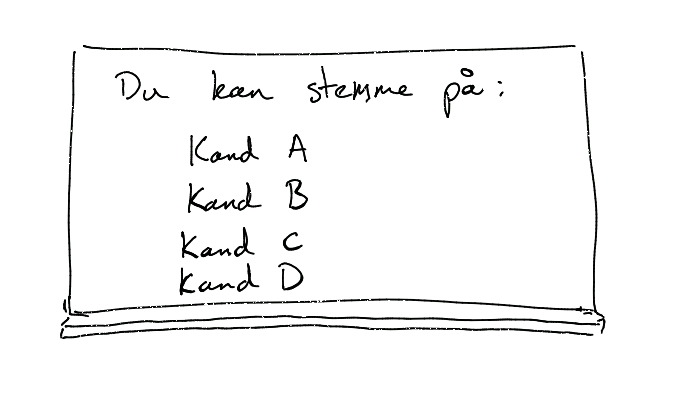 Du kan stemme på:
Kand A
Kand B
Kand C
Kand D